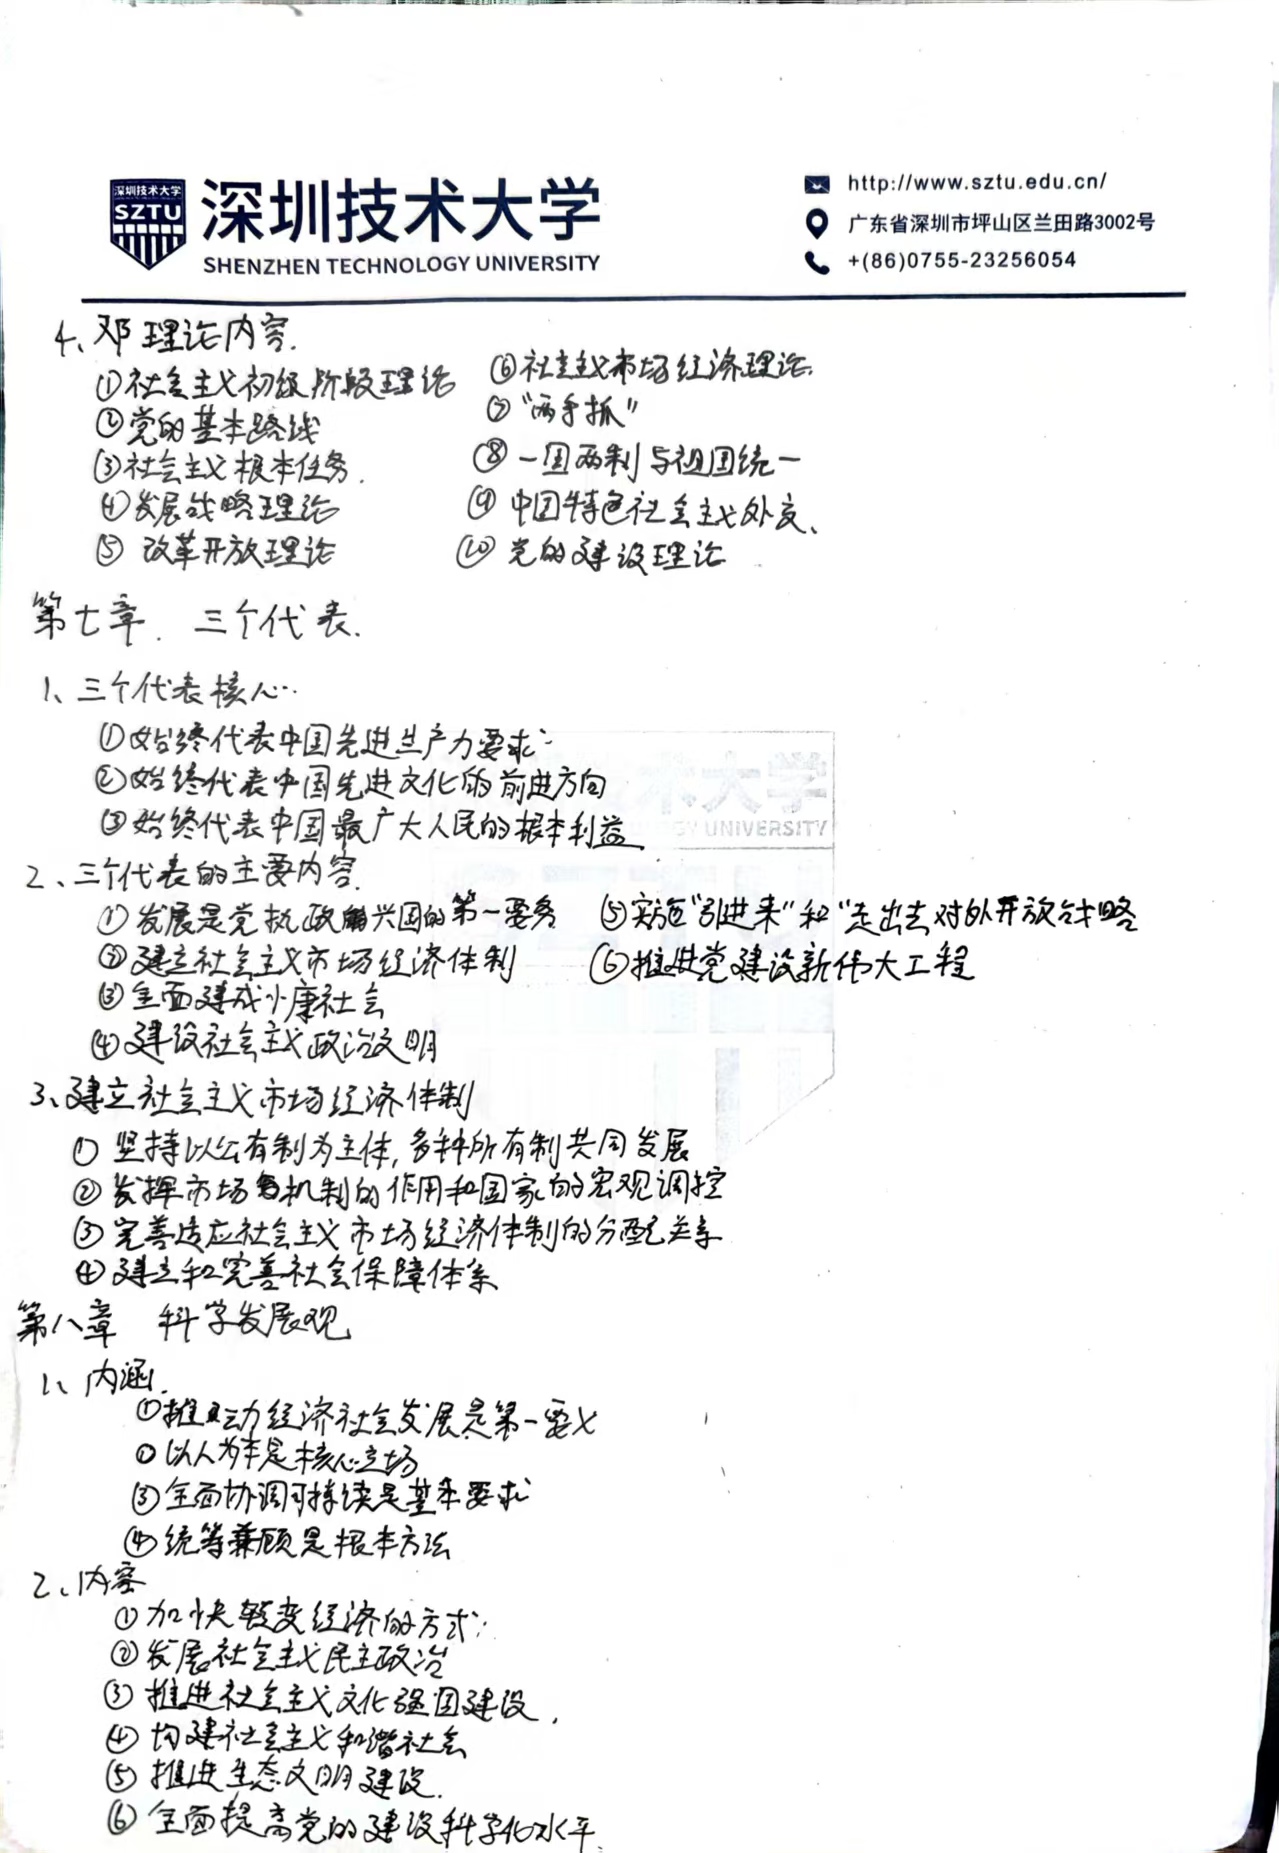 深圳技术大学
SZTU
深圳技术大学
SHENZHEN TECHNOLOGY UNIVERSITY
http://www.sztu.edu.cn/
广东省深圳市坪山区兰田路3002号
+(86)0755-23256054
4、邓理论内容.
①社会主义初级阶段理论
②党的基本路线
③社会主义根本任务.
④发展战略理论
⑤ 改革开放理论
⑥社会主义市场经济理论.
⑦"两手抓"
⑧一国两制与祖国统一
⑨ 中国特色社会主义外交、
⑩ 党的建设理论
第七章. 三个代表.
1、三个代表核心
①始终代表中国先进生产力要求
②始终代表中国先进文化的前进方向
③始终代表中国最广大人民的根本利益
2、三个代表的主要内容.
①发展是党执政兴国的第一要务
②建立社会主义市场经济体制
③全面建成小康社会
④建设社会主义政治文明
⑤实施"引进来"和"走出去对外开放战略
⑥推进党建设新伟大工程
3、建立社会主义市场经济体制
① 坚持以公有制为主体,多种所有制共同发展
② 发挥市场机制的作用和国家的宏观调控
③ 完善适应社会主义市场经济体制的分配关系
④ 建立和完善社会保障体系
第八章 科学发展观
1、内涵.
①推动经济社会发展是第一要义
②以人为本是核心立场
③全面协调可持续是基本要求
④统筹兼顾是根本方法
2、内容
①加快转变经济的方式
②发展社会主义民主政治
③推进社会主义文化强国建设.
④ 构建社会主义和谐社会
⑤ 推进生态文明建设.
⑥ 全面提高党的建设科学化水平.
大学
UNIVERSITY